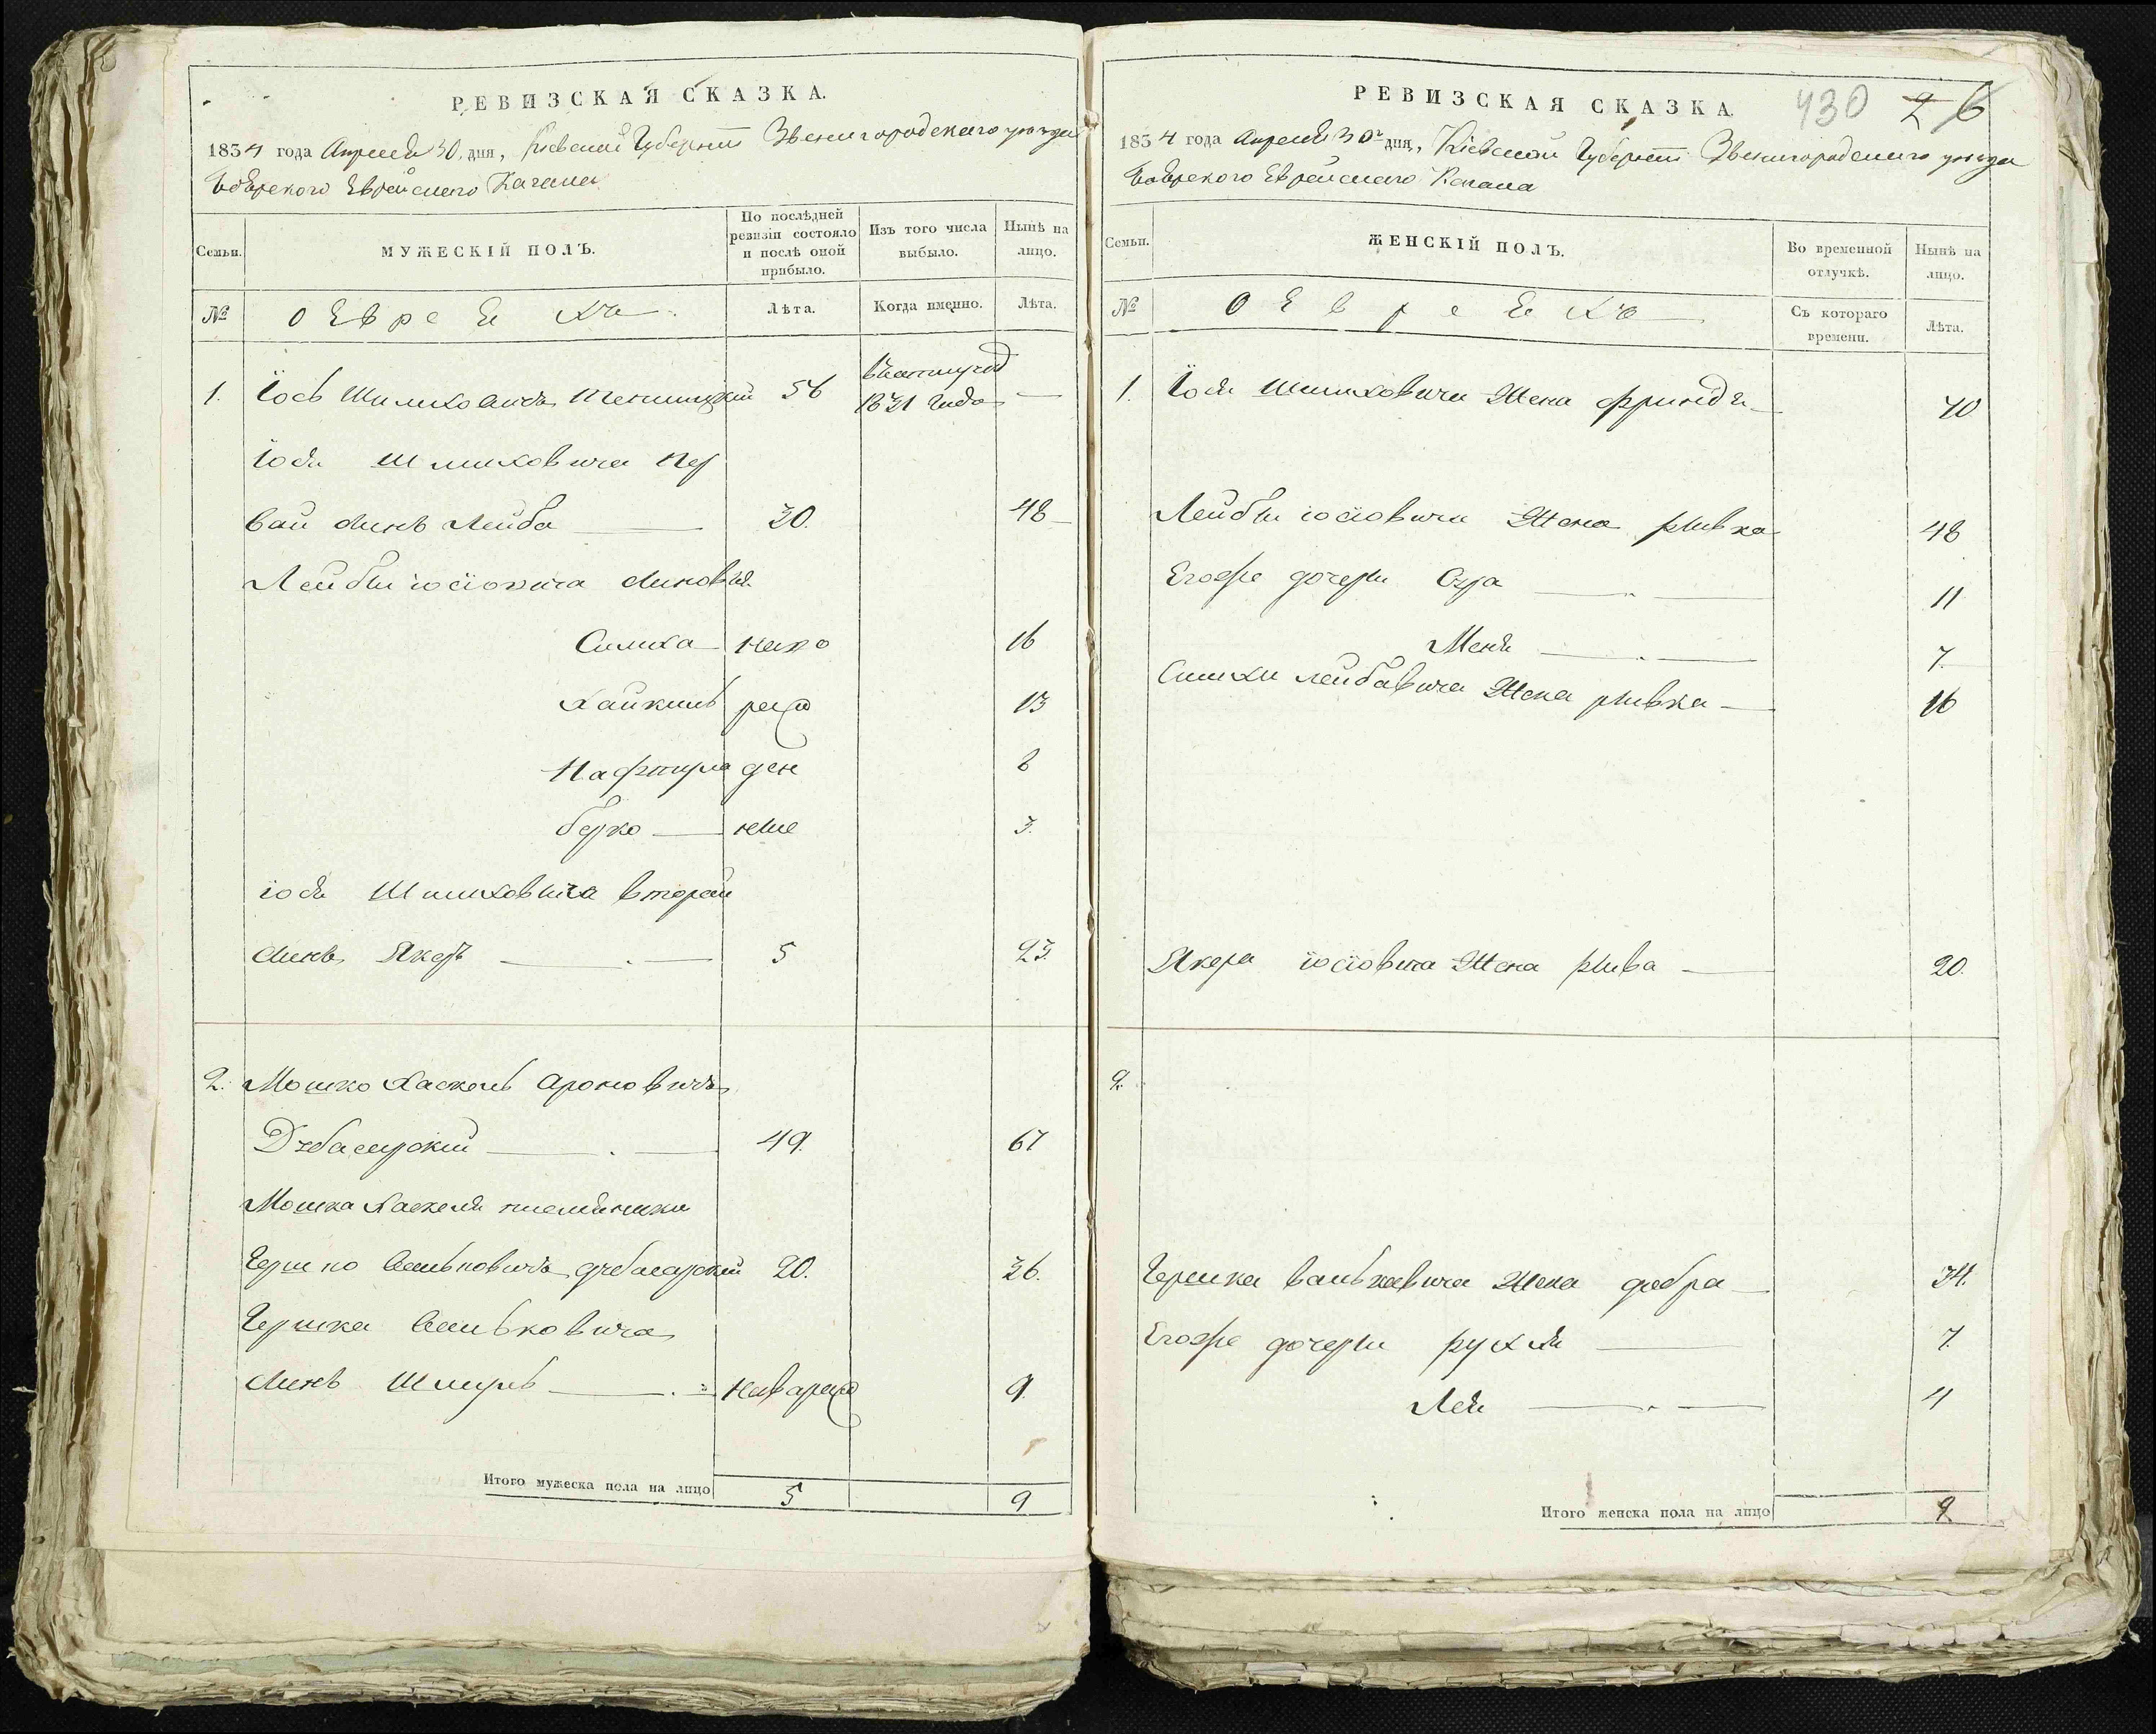 РЕВИЗСКАЯ СКАЗКА.
1834 года Апреля 30. дня, Кіевской Губерніи Звенигородскаго уезда
Боярского Еврейского Кагала
Семьи.
МУЖЕСКІЙ ПОЛЪ.
По послѣдней ревизіи состояло и послѣ оной прибыло.
Изъ того числа выбыло.
Нынѣ на лицо.
№
О Евреехъ
Лѣта.
Когда именно.
Лѣта.
1. Іось Шмилховичъ 56 1831 года —
Іося Шмилховича пер
вай синъ Лейба 30. 48
Лейбы іосіовича синовья
Симха напо 16
Хайкиль рево 13
Нафтула ден 8
берко ние 3.
іося Шмилховича вторай
синъ Якер 5 23.
2. Мошко Хаскель Ароновичъ
Дубасарский 49. 67
Мошка Хаскеля племянники
Гершко Вольковичъ дубасарский 20. 36.
Гершка Вольковича
синъ Шмуль 9.
Итого мужеска пола на лицо 5 9
РЕВИЗСКАЯ СКАЗКА.
430 26
1834 года Апреля 30 дня, Кіевской Губерніи Звенигородскаго уезда
Боярского Еврейского Кагала
Семьи.
ЖЕНСКІЙ ПОЛЪ.
Во временной отлучкѣ.
Нынѣ на лицо.
№
О Евреехъ
Съ котораго времени.
Лѣта.
1. Іося Шмилховича Жена фринда 70
Лейбы іосіовича Жена ривка 48
Егоже дочери Сура 11
Меня 7.
Симхи лейбавича Жена ривка 16
Якера іосіовича Жена рива 20.
2.
Гершка вальковича Жена добра 34.
Егоже дочери рухля 7.
Лея 4
Итого женска пола на лицо 9